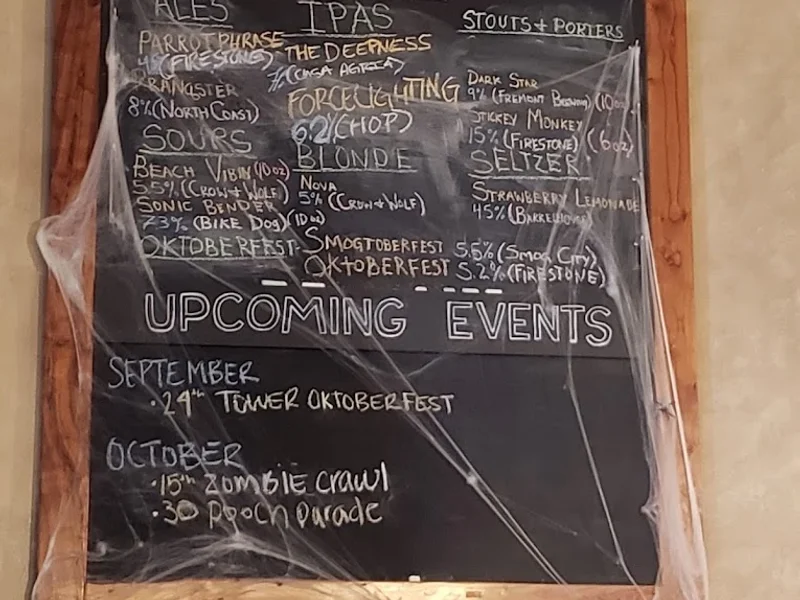 ALES
PARROTPHRASE
(FIRESTONE)
PRANQSTER
8% (NORTH COAST)
SOURS
BEACH VIBIN (10 oz)
5.5% (CROW + WOLF)
SONIC BENDER
7.3% (BIKE DOG) (10 oz)
OKTOBERFEST-
IPAS
THE DEEPNESS
7% (CASA AGRIA)
FORCELIGHTING
6.2% (CHOP)
BLONDE
NOVA
5% (CROW + WOLF)
SMOGTOBERFEST 5.5% (SMOG CITY)
OKTOBERFEST 5.2% (FIRESTONE)
STOUTS + PORTERS
DARK STAR
9% (FREMONT BREWING) (10 oz)
STICKEY MONKEY
15% (FIRESTONE) (6 oz)
SELTZER
STRAWBERRY LEMONADE
4.5% (BARRELHOUSE)
UPCOMING EVENTS
SEPTEMBER
• 24th TOWER OKTOBERFEST
OCTOBER
• 15th ZOMBIE CRAWL
• 30 POOCH PARADE